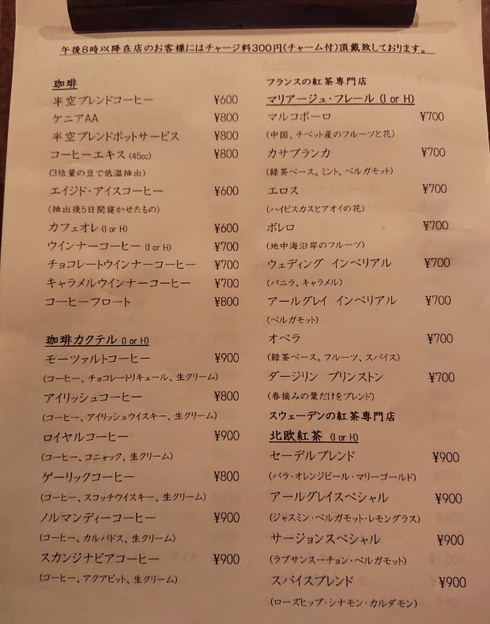 午後8時以降在店のお客様にはチャージ料300円(チャーム付)頂戴致しております。
珈琲
半空ブレンドコーヒー ¥600
ケニアAA ¥800
半空ブレンドポットサービス ¥800
コーヒーエキス (45cc) ¥800
(3倍量の豆で低温抽出)
エイジド・アイスコーヒー ¥600
(抽出後5日間寝かせたもの)
カフェオレ (I or H) ¥600
ウインナーコーヒー (I or H) ¥700
チョコレートウインナーコーヒー ¥700
キャラメルウインナーコーヒー ¥700
コーヒーフロート ¥800
珈琲カクテル (I or H)
モーツァルトコーヒー ¥900
(コーヒー、チョコレートリキュール、生クリーム)
アイリッシュコーヒー ¥800
(コーヒー、アイリッシュウイスキー、生クリーム)
ロイヤルコーヒー ¥900
(コーヒー、コニャック、生クリーム)
ゲーリックコーヒー ¥800
(コーヒー、スコッチウイスキー、生クリーム)
ノルマンディーコーヒー ¥900
(コーヒー、カルバドス、生クリーム)
スカンジナビアコーヒー ¥900
(コーヒー、アクアビット、生クリーム)
フランスの紅茶専門店
マリアージュ・フレール (I or H)
マルコポーロ ¥700
(中国、チベット産のフルーツと花)
カサブランカ ¥700
(緑茶ベース。ミント、ベルガモット)
エロス ¥700
(ハイビスカスとアオイの花)
ボレロ ¥700
(地中海沿岸のフルーツ)
ウェディング インペリアル ¥700
(バニラ、キャラメル)
アールグレイ インペリアル ¥700
(ベルガモット)
オペラ ¥700
(緑茶ベース。フルーツ、スパイス)
ダージリン プリンストン ¥700
(春摘みの葉だけをブレンド)
スウェーデンの紅茶専門店
北欧紅茶 (I or H)
セーデルブレンド ¥900
(バラ・オレンジピール・マリーゴールド)
アールグレイスペシャル ¥900
(ジャスミン・ベルガモット・レモングラス)
サージョンスペシャル ¥900
(ラプサンスーチョン・ベルガモット)
スパイスブレンド ¥900
(ローズヒップ・シナモン・カルダモン)